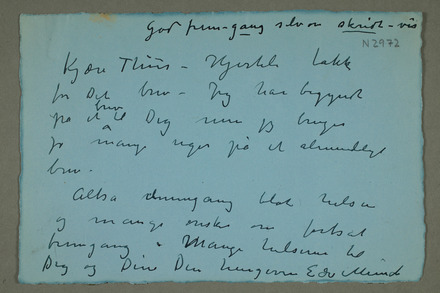 God frem-gang selv om skridt-vis
N 2972
Kjære Thiis – Hjertelig takk
for Dit brev – Jeg har begyndt
på et brev til Dig men jeg bruger
jo mange uger på et almindeligt
brev.
Altså denne gang blot hilsen
og mange ønsker om fortsat
fremgang. Mange hilsener til
Dig og Dine Din hengivne Edv Munch